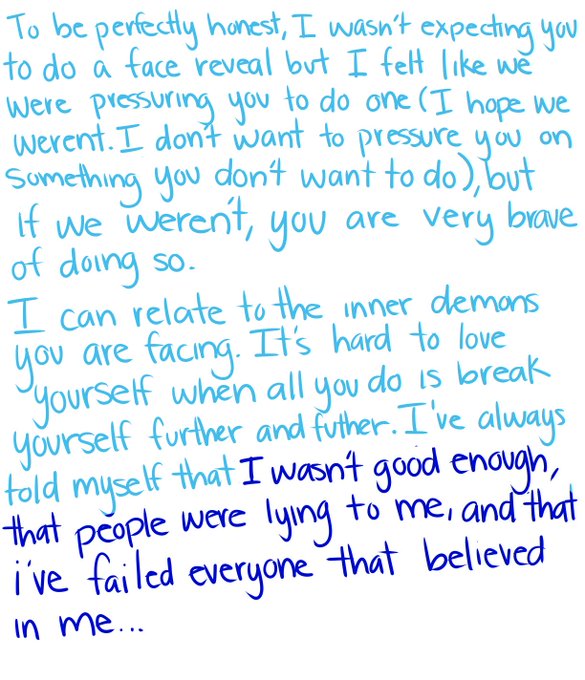 To be perfectly honest, I wasn't expecting you
to do a face reveal but I felt like we
were pressuring you to do one (I hope we
werent. I don't want to pressure you on
something you don't want to do), but
if we weren't, you are very brave
of doing so.
I can relate to the inner demons
you are facing. It's hard to love
yourself when all you do is break
yourself further and futher. I've always
told myself that I wasn't good enough,
that people were lying to me, and that
i've failed everyone that believed
in me...